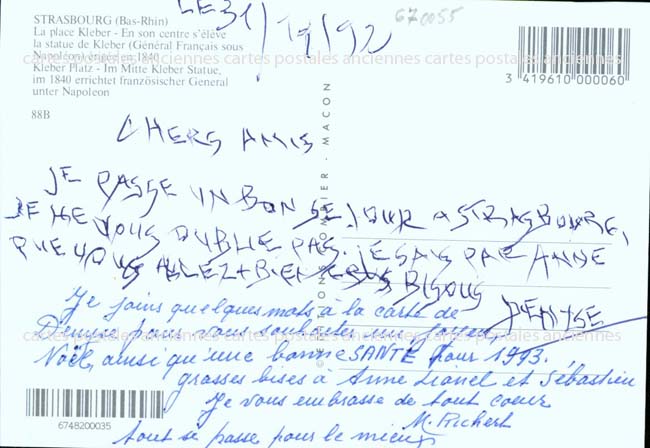 STRASBOURG (Bas-Rhin)
La place Kleber - En son centre s'élève
la statue de Kleber (Général Français sous
Napoléon) érigée en 1840
Kleber Platz - Im Mitte Kleber Statue,
im 1840 errichtet französischer General
unter Napoleon
88B
LE 31/12/92
670055
3 419610 000060
cartes postales anciennes cartes postales anciennes cartes postales anciennes
MACON
CHERS AMIS
JE PASSE UN BON SEJOUR A STRASBOURG,
JE NE VOUS OUBLIE PAS. JE SAIS PAR ANNE
QUE VOUS ALLEZ BIEN GROS BISOUS
DENISE
Je joins quelques mots à la carte de
Denise pour vous souhaiter un joyeux
cartes postales anciennes cartes postales anciennes cartes postales anciennes
Noël, ainsi qu'une bonne SANTÉ pour 1993.
grosses bises à Anne Lionel et Sébastien
Je vous embrasse de tout coeur
M. Richert
tout se passe pour le mieux
6748200035